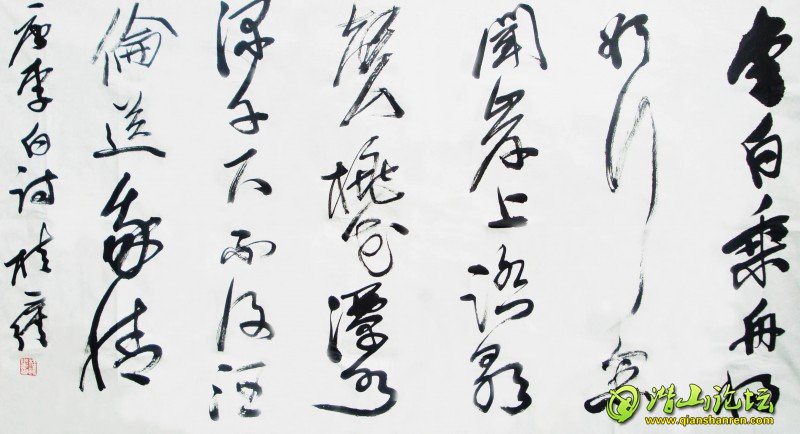 李白乘舟将
欲行忽
聞岸上踏歌
聲桃花潭水
深千尺不及汪
倫送我情
唐李白诗
潜山论坛
www.qianshanren.com